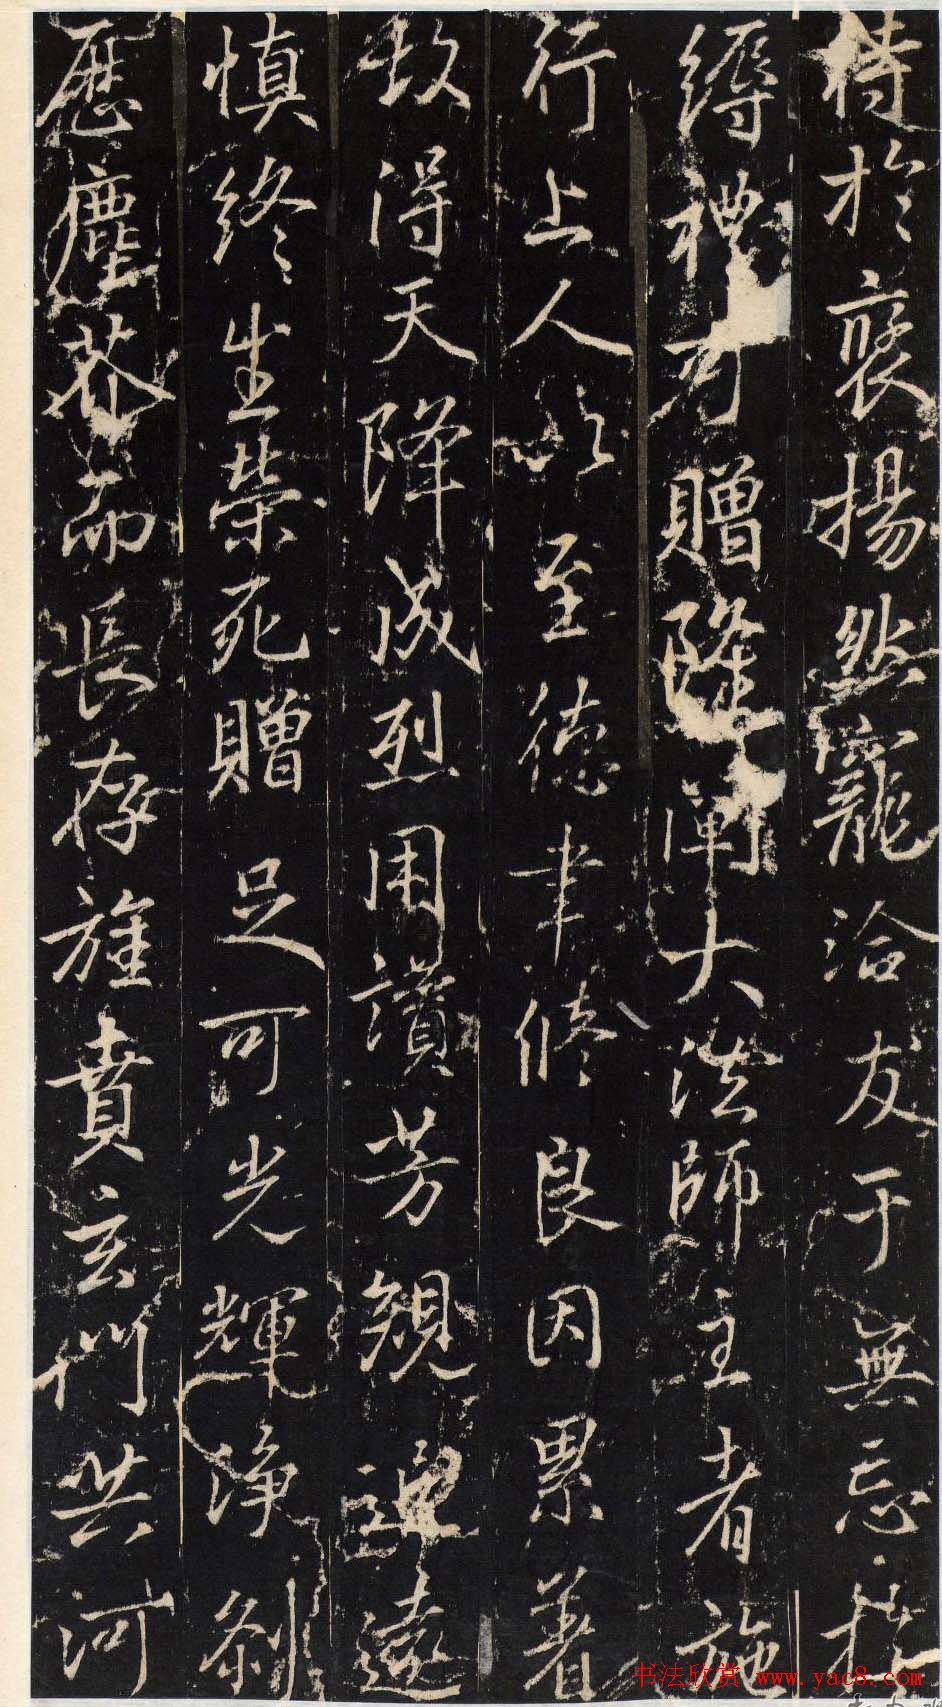 特於褒揚然寵洽友于無忘於
縟禮可贈隆闡大法師主者施
行上人以至德聿修良因累著
故得天降成烈用讚芳規追遠
慎終生榮死贈足可光輝淨刹
歷塵芥而長存旌賁玄門共河
书法欣赏 www.yac8.com